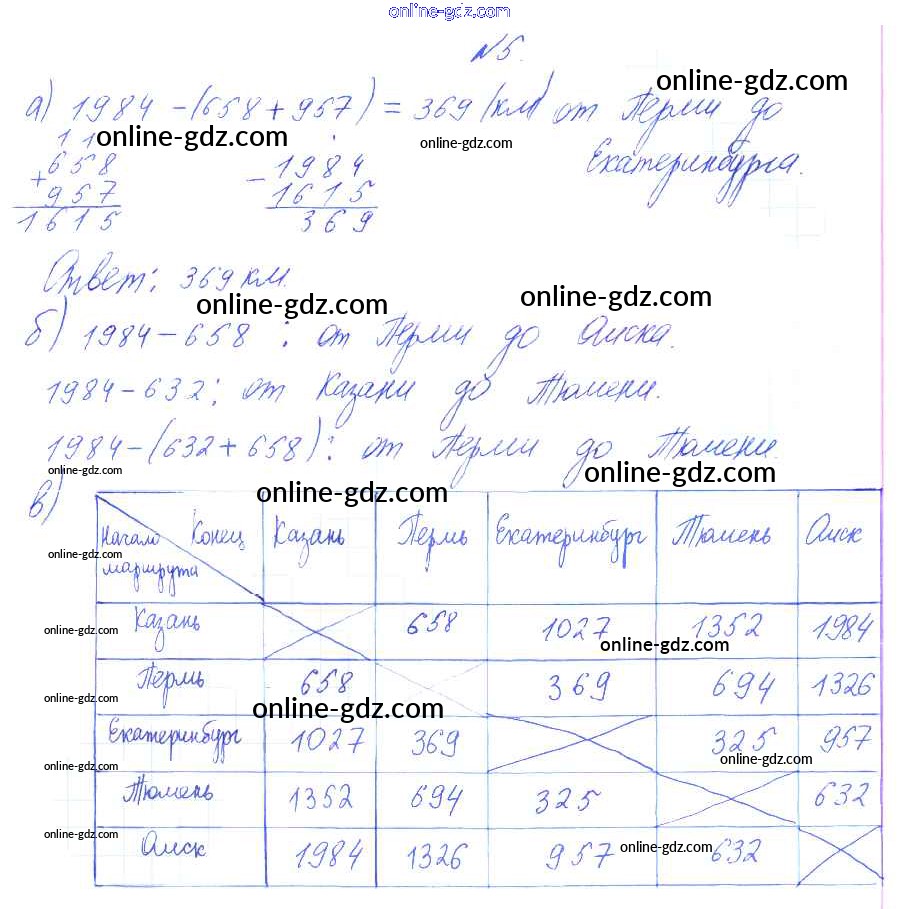 online-gdz.com
№5.
а) 1984 - (658 + 957) = 369 (км) от Перми до
Екатеринбурга.
online-gdz.com
online-gdz.com
online-gdz.com
1 1
+ 658
957
1615
- 1984
1615
369
Ответ: 369 км.
online-gdz.com
online-gdz.com
б) 1984 - 658 : от Перми до Омска.
1984 - 632 : от Казани до Тюмени.
1984 - (632 + 658) : от Перми до Тюмени.
online-gdz.com
online-gdz.com
online-gdz.com
в)
Начало маршрута Конец Казань Пермь Екатеринбург Тюмень Омск
online-gdz.com
Казань 658 1027 1352 1984
online-gdz.com
online-gdz.com
Пермь 658 369 694 1326
online-gdz.com
online-gdz.com
Екатеринбург 1027 369 325 957
online-gdz.com
online-gdz.com
Тюмень 1352 694 325 632
online-gdz.com
Омск 1984 1326 957 632
online-gdz.com
online-gdz.com